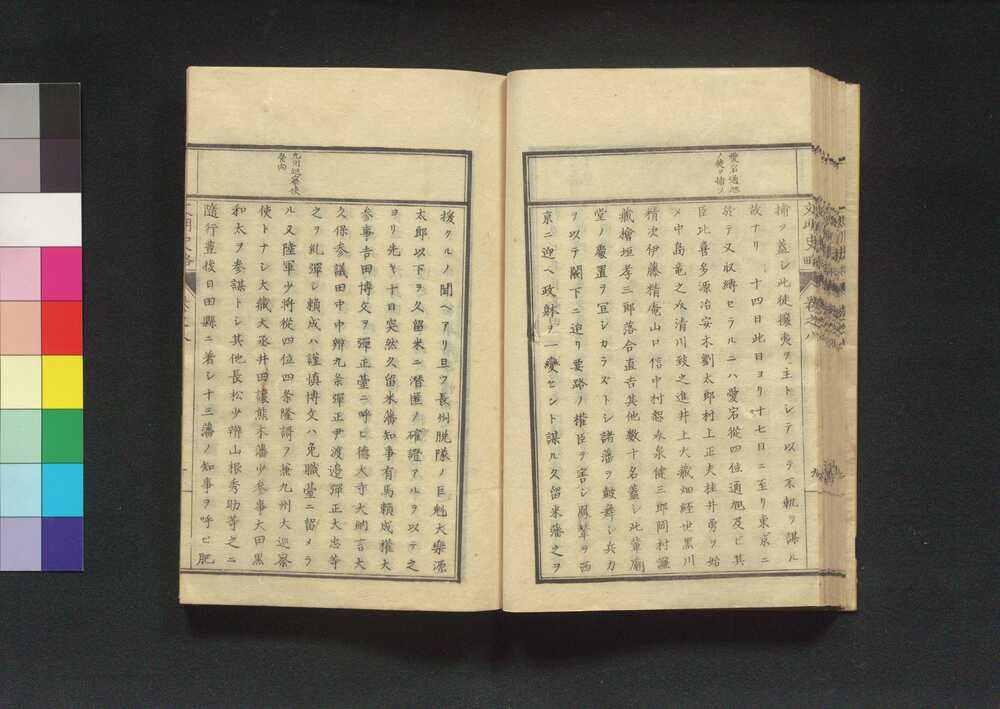 愛宕通旭
ノ徒ヲ捕フ
捕フ蓋シ此徒攘夷ヲ主トシテ以テ不軌ヲ謀ル
故ナリ 十四日此日ヨリ十七日ニ至リ東京ニ
於テ又収縛セラルニハ愛宕從四位通旭及ヒ其
臣比喜多源治安木劉太郎村上正夫桂井勇ヲ始
メ中島竜之清川致之進井上大蔵畑経世黒川
精次伊藤精庵山口信中村恕泉健三郎岡村謹
藏檜垣孝三郎落合直吉其他數十名蓋シ此輩廟
堂ノ處置ヲ宜シカラストシ諸藩ヲ皷舞シ兵力
ヲ以テ闕下ニ迫リ要路ノ權臣ヲ害シ鳳輦ヲ西
京ニ迎ヘ政躰ヲ一變セント謀ル久留米藩之ヲ
九州巡察使
發向
援クルノ聞ヘアリ且ツ長州脱隊ノ巨魁大樂源
太郎以下ヲ久留米ニ潜匿ノ確證アルヲ以テ之
ヨリ先キ十日突然久留米藩知事有馬頼咸權大
參事吉田博文ヲ彈正臺ニ呼ヒ德大寺大納言大
久保参議田中中辨九条彈正尹渡邉彈正大忠等
之ヲ糺彈シ頼咸ハ謹慎博文ハ免職臺ニ留メラ
ル又陸軍少將從四位四条隆謌ヲ兼九州大巡察
使トナシ大藏大丞井田讓熊本藩少参事大田黒
和太ヲ参謀トシ其他長松少辨山根秀助等之ニ
隨行豊後日田縣ニ着シ十三藩ノ知事ヲ呼ヒ肥